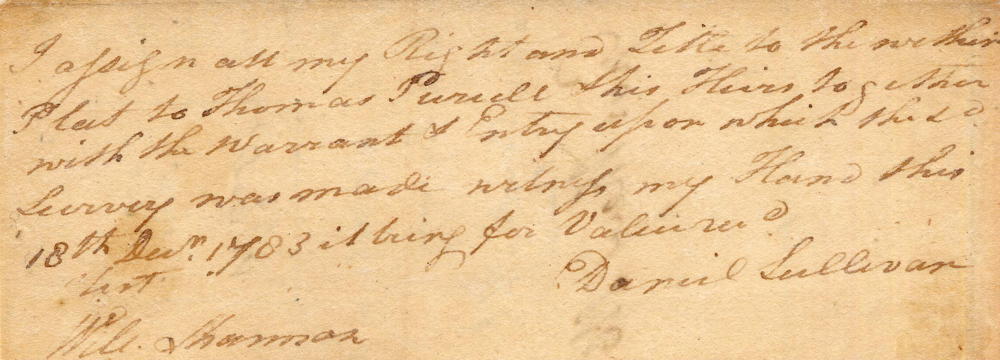 I assign all my Right and Title to the within
Plat to Thomas Purcell & his Heirs together
with the Warrant & Entry upon which the sd
Survey was made witness my Hand this
18th Decr. 1783 it being for Value recd
Test
Daniel Sullivan
Will. Shannon